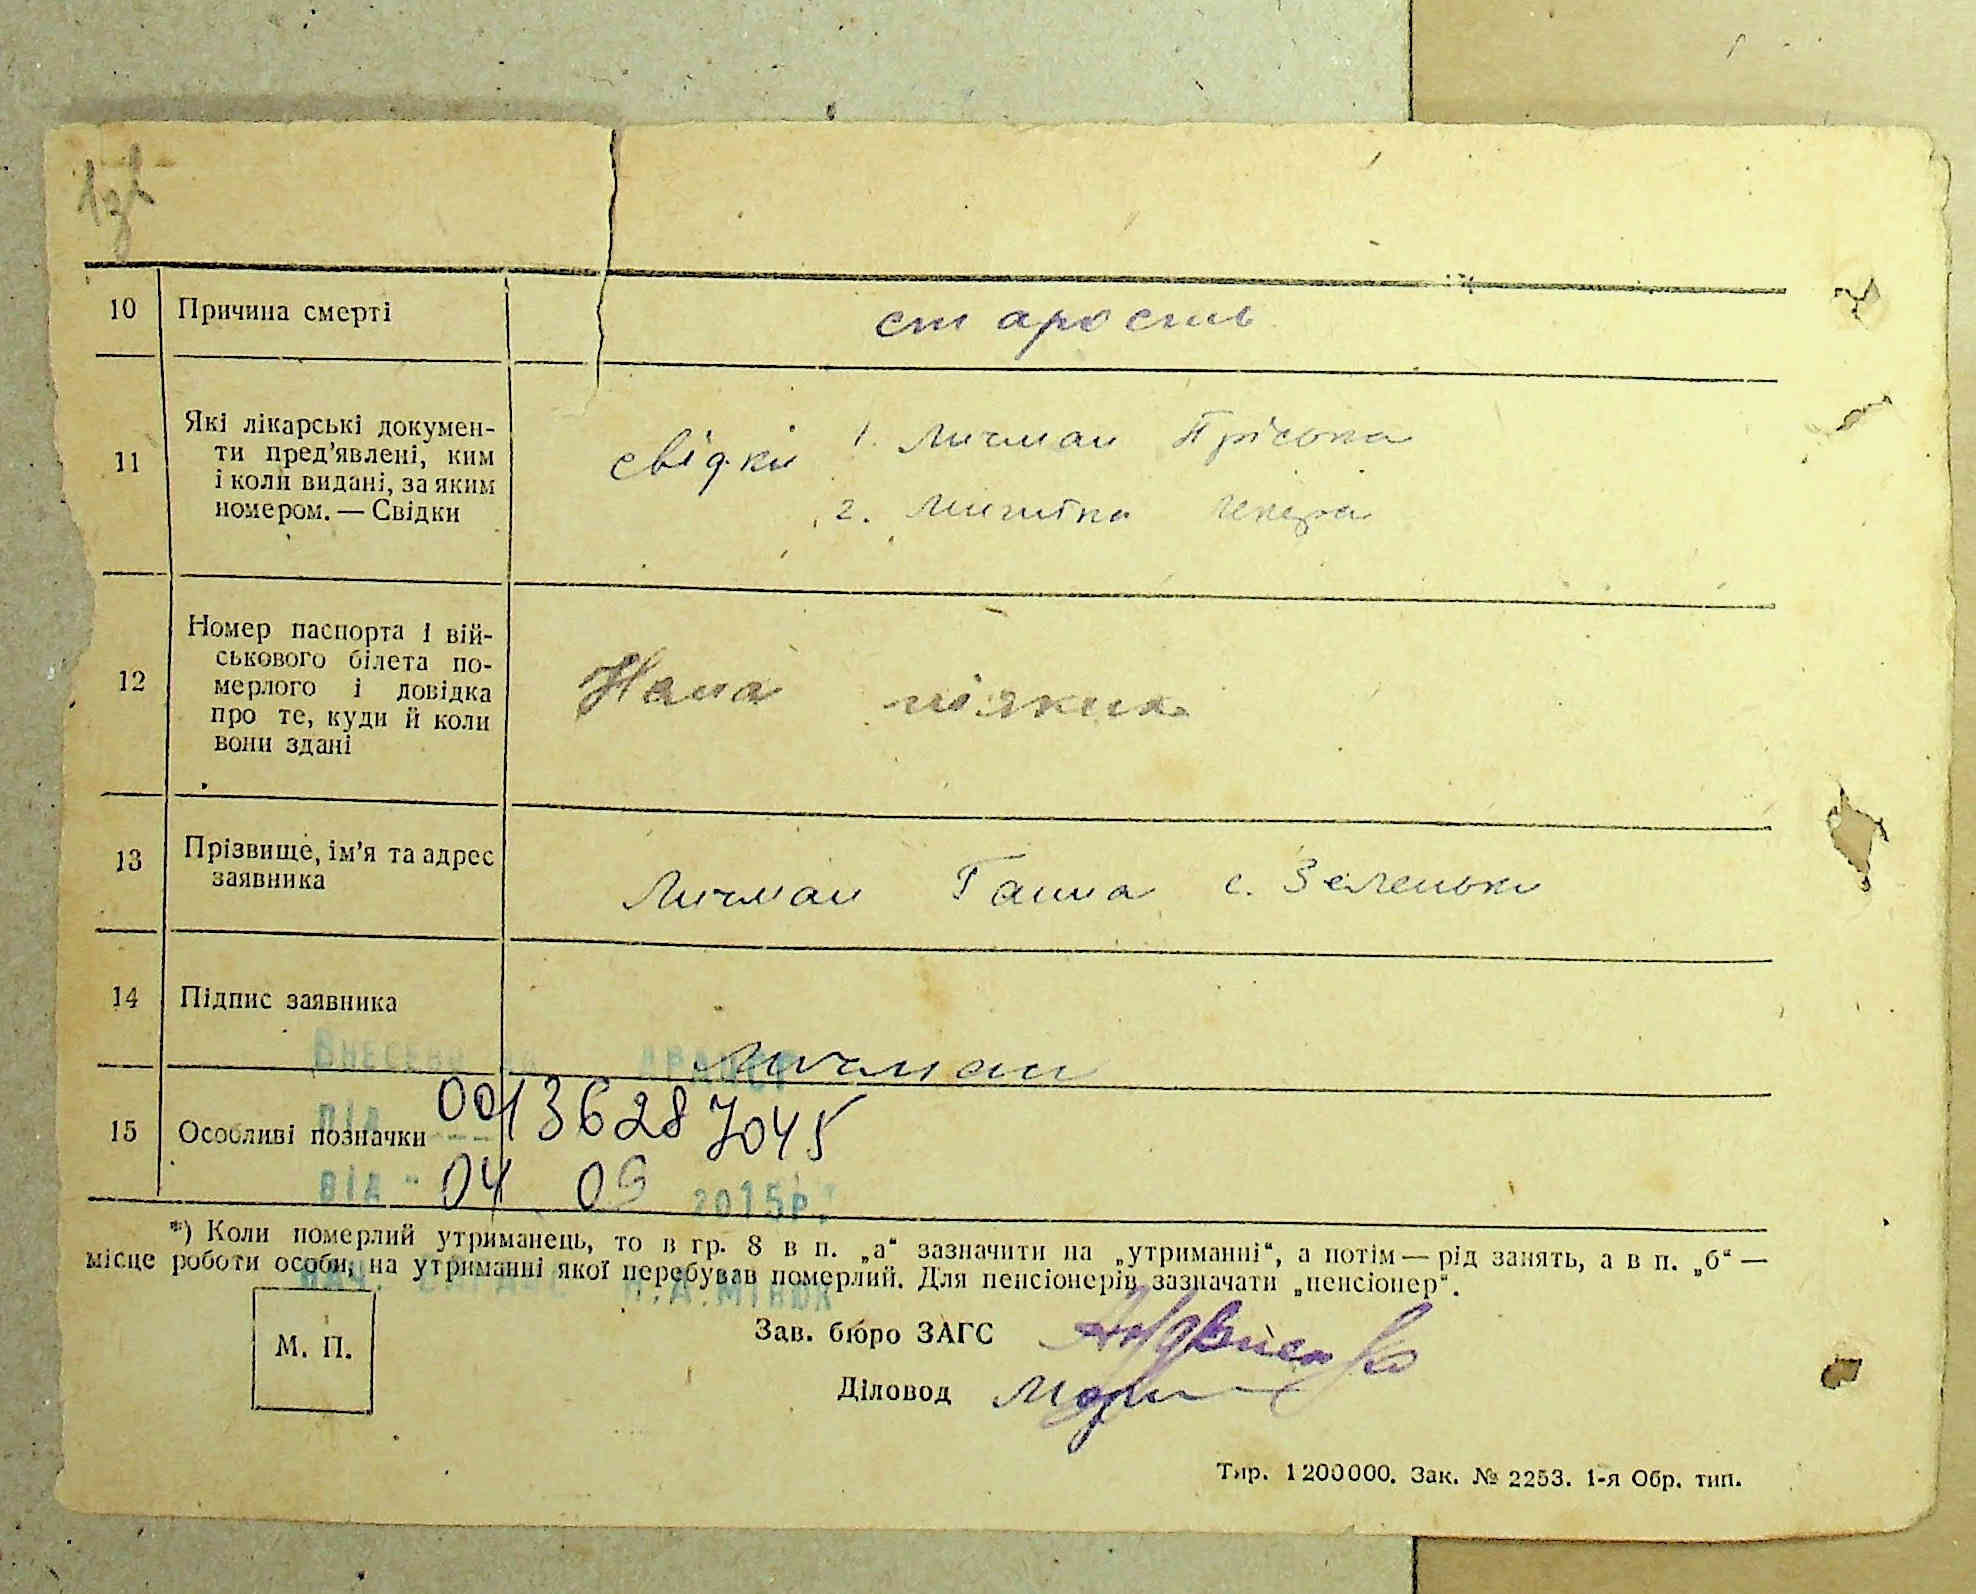 10 Причина смерті старость
11 Які лікарські докумен-
ти пред'явлені, ким
і коли видані, за яким
номером. — Свідки
свідки 1. Личман Пріська
2.
12 Номер паспорта і вій-
ськового білета по-
мерлого і довідка
про те, куди й коли
вони здані
Нема ніяких
13 Прізвище, ім'я та адрес
заявника
Личман Ганна с. Зеленьки
14 Підпис заявника
Личман
ВНЕСЕНО ДРАЦСГ
15 Особливі позначки 00136287045
ВІД " 04 09 2015р.
*) Коли померлий утриманець, то в гр. 8 в п. „а“ зазначити на „утриманні“, а потім — рід занять, а в п. „б“ —
місце роботи особи, на утриманні якої перебував померлий. Для пенсіонерів зазначати „пенсіонер“.
Н.А.МІНЮК
М. П.
Зав. бюро ЗАГС
Діловод
Тир. 1 200 000. Зак. № 2253. 1-я Обр. тип.